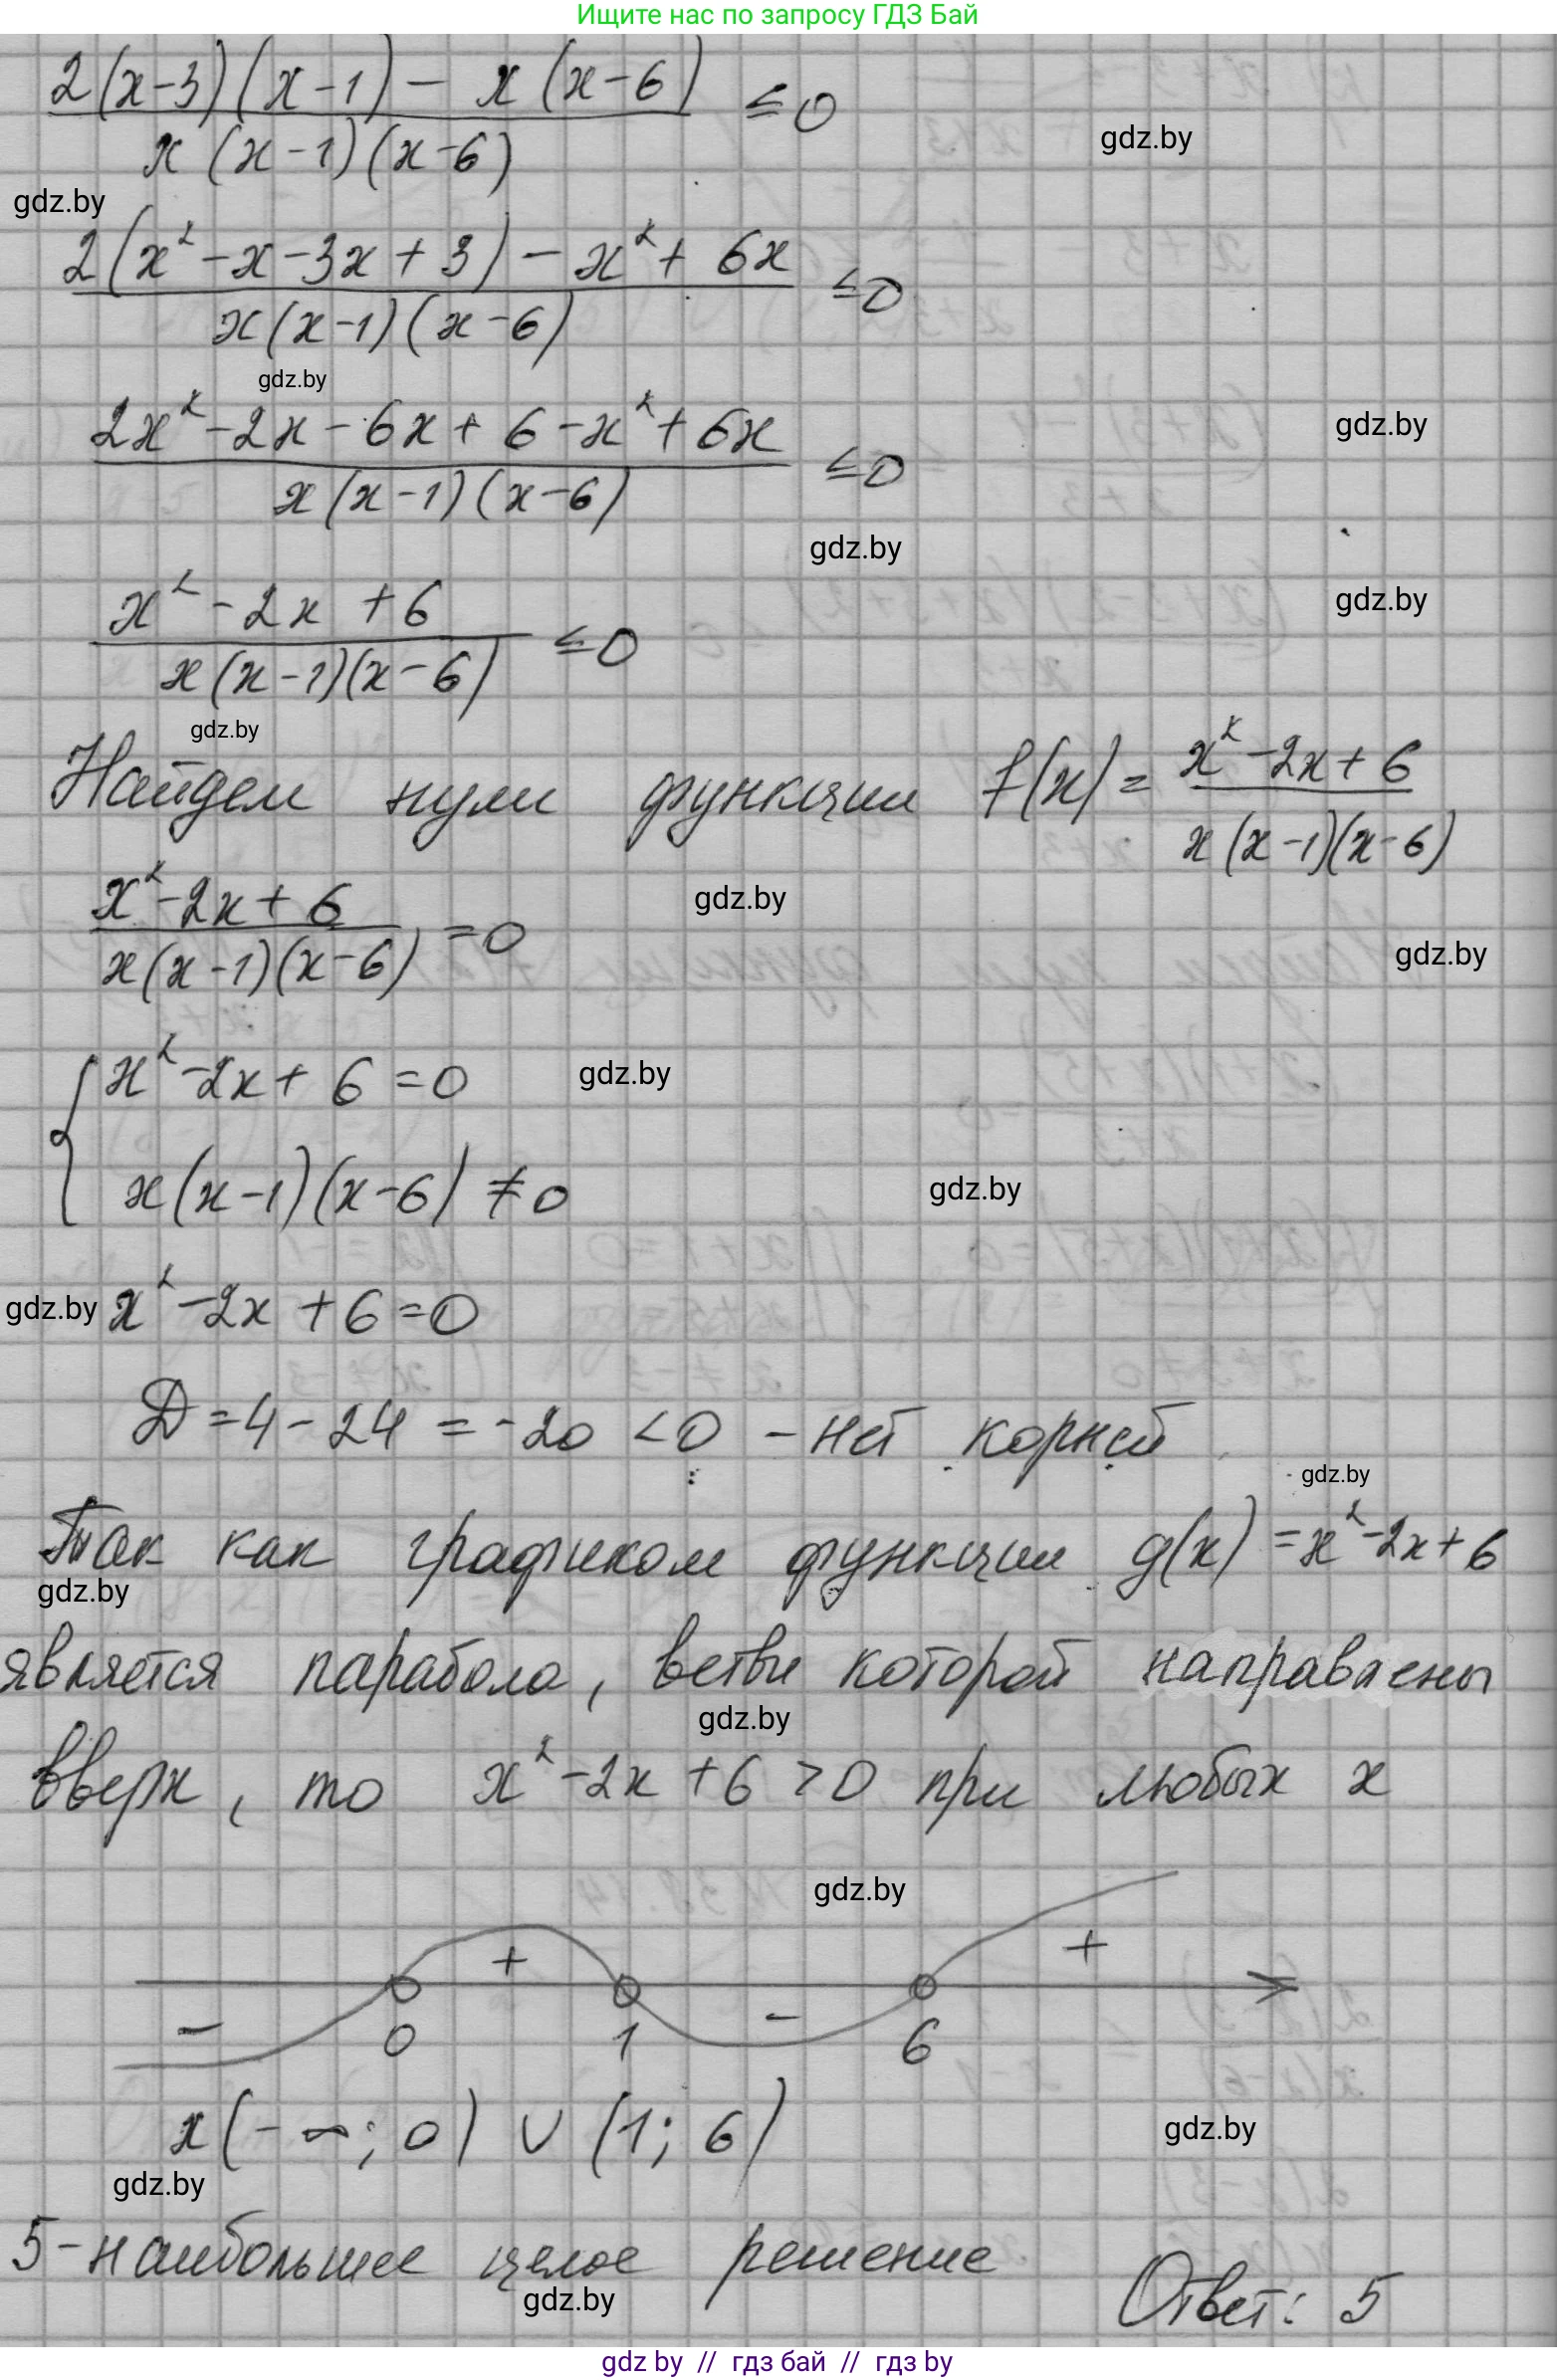 Ищите нас по запросу ГДЗ Бай
2(x-3)(x-1) - x(x-6)
≤0
x(x-1)(x-6)
gdz.by
gdz.by
2(x²-x-3x+3)-x²+6x
≤0
x(x-1)(x-6)
gdz.by
2x²-2x-6x+6-x²+6x
≤0
x(x-1)(x-6)
gdz.by
gdz.by
x²-2x+6
≤0
x(x-1)(x-6)
gdz.by
gdz.by
Найдем нули функции f(x)= x²-2x+6
x(x-1)(x-6)
x²-2x+6
=0
x(x-1)(x-6)
gdz.by
gdz.by
x²-2x+6=0
gdz.by
x(x-1)(x-6)≠0
gdz.by
gdz.by
x²-2x+6=0
D=4-24=-20<0 - нет корней
gdz.by
Так как графиком функции g(x)=x²-2x+6
gdz.by
является парабола, ветви которой направлены
gdz.by
вверх, то x²-2x+6>0 при любых x
gdz.by
- + - +
0 1 6
x(-∞;0)∪(1;6)
gdz.by
gdz.by
5-наибольшее целое решение
gdz.by
Ответ: 5
gdz by // гдз бай // гдз by